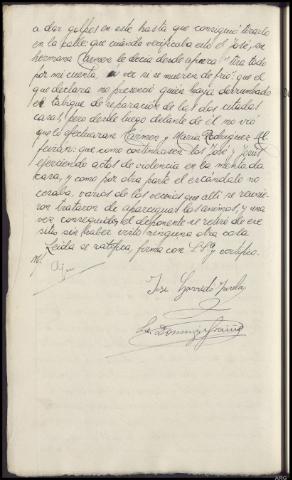 a dar golpes en este hasta que consiguió tirarlo
en la calle: que cuando verificaba esto el José, su
hermana Carmen le decía desde afuera "tira todo
por mi cuenta, a ver si se mueren de frío": que el
que declara no presenció quien haya derrumbado
el tabique de separación de las dos citadas
casas; pero desde luego delante de él no vió
que lo efectuaran Carmen y María Rodríguez Al
feirán: que como continuaban los José y
ejerciendo actos de violencia en la mentada
casa, y como por otra parte el escándalo no
cesaba, varios de los vecinos que allí se reunie
ron trataron de apaciguar los ánimos, y una
vez conseguido, el deponente se retiró de ese
sitio sin haber visto ninguna otra cosa.
Leida se ratifica, firma con S.Sª y certifico.
José Garrido Varela